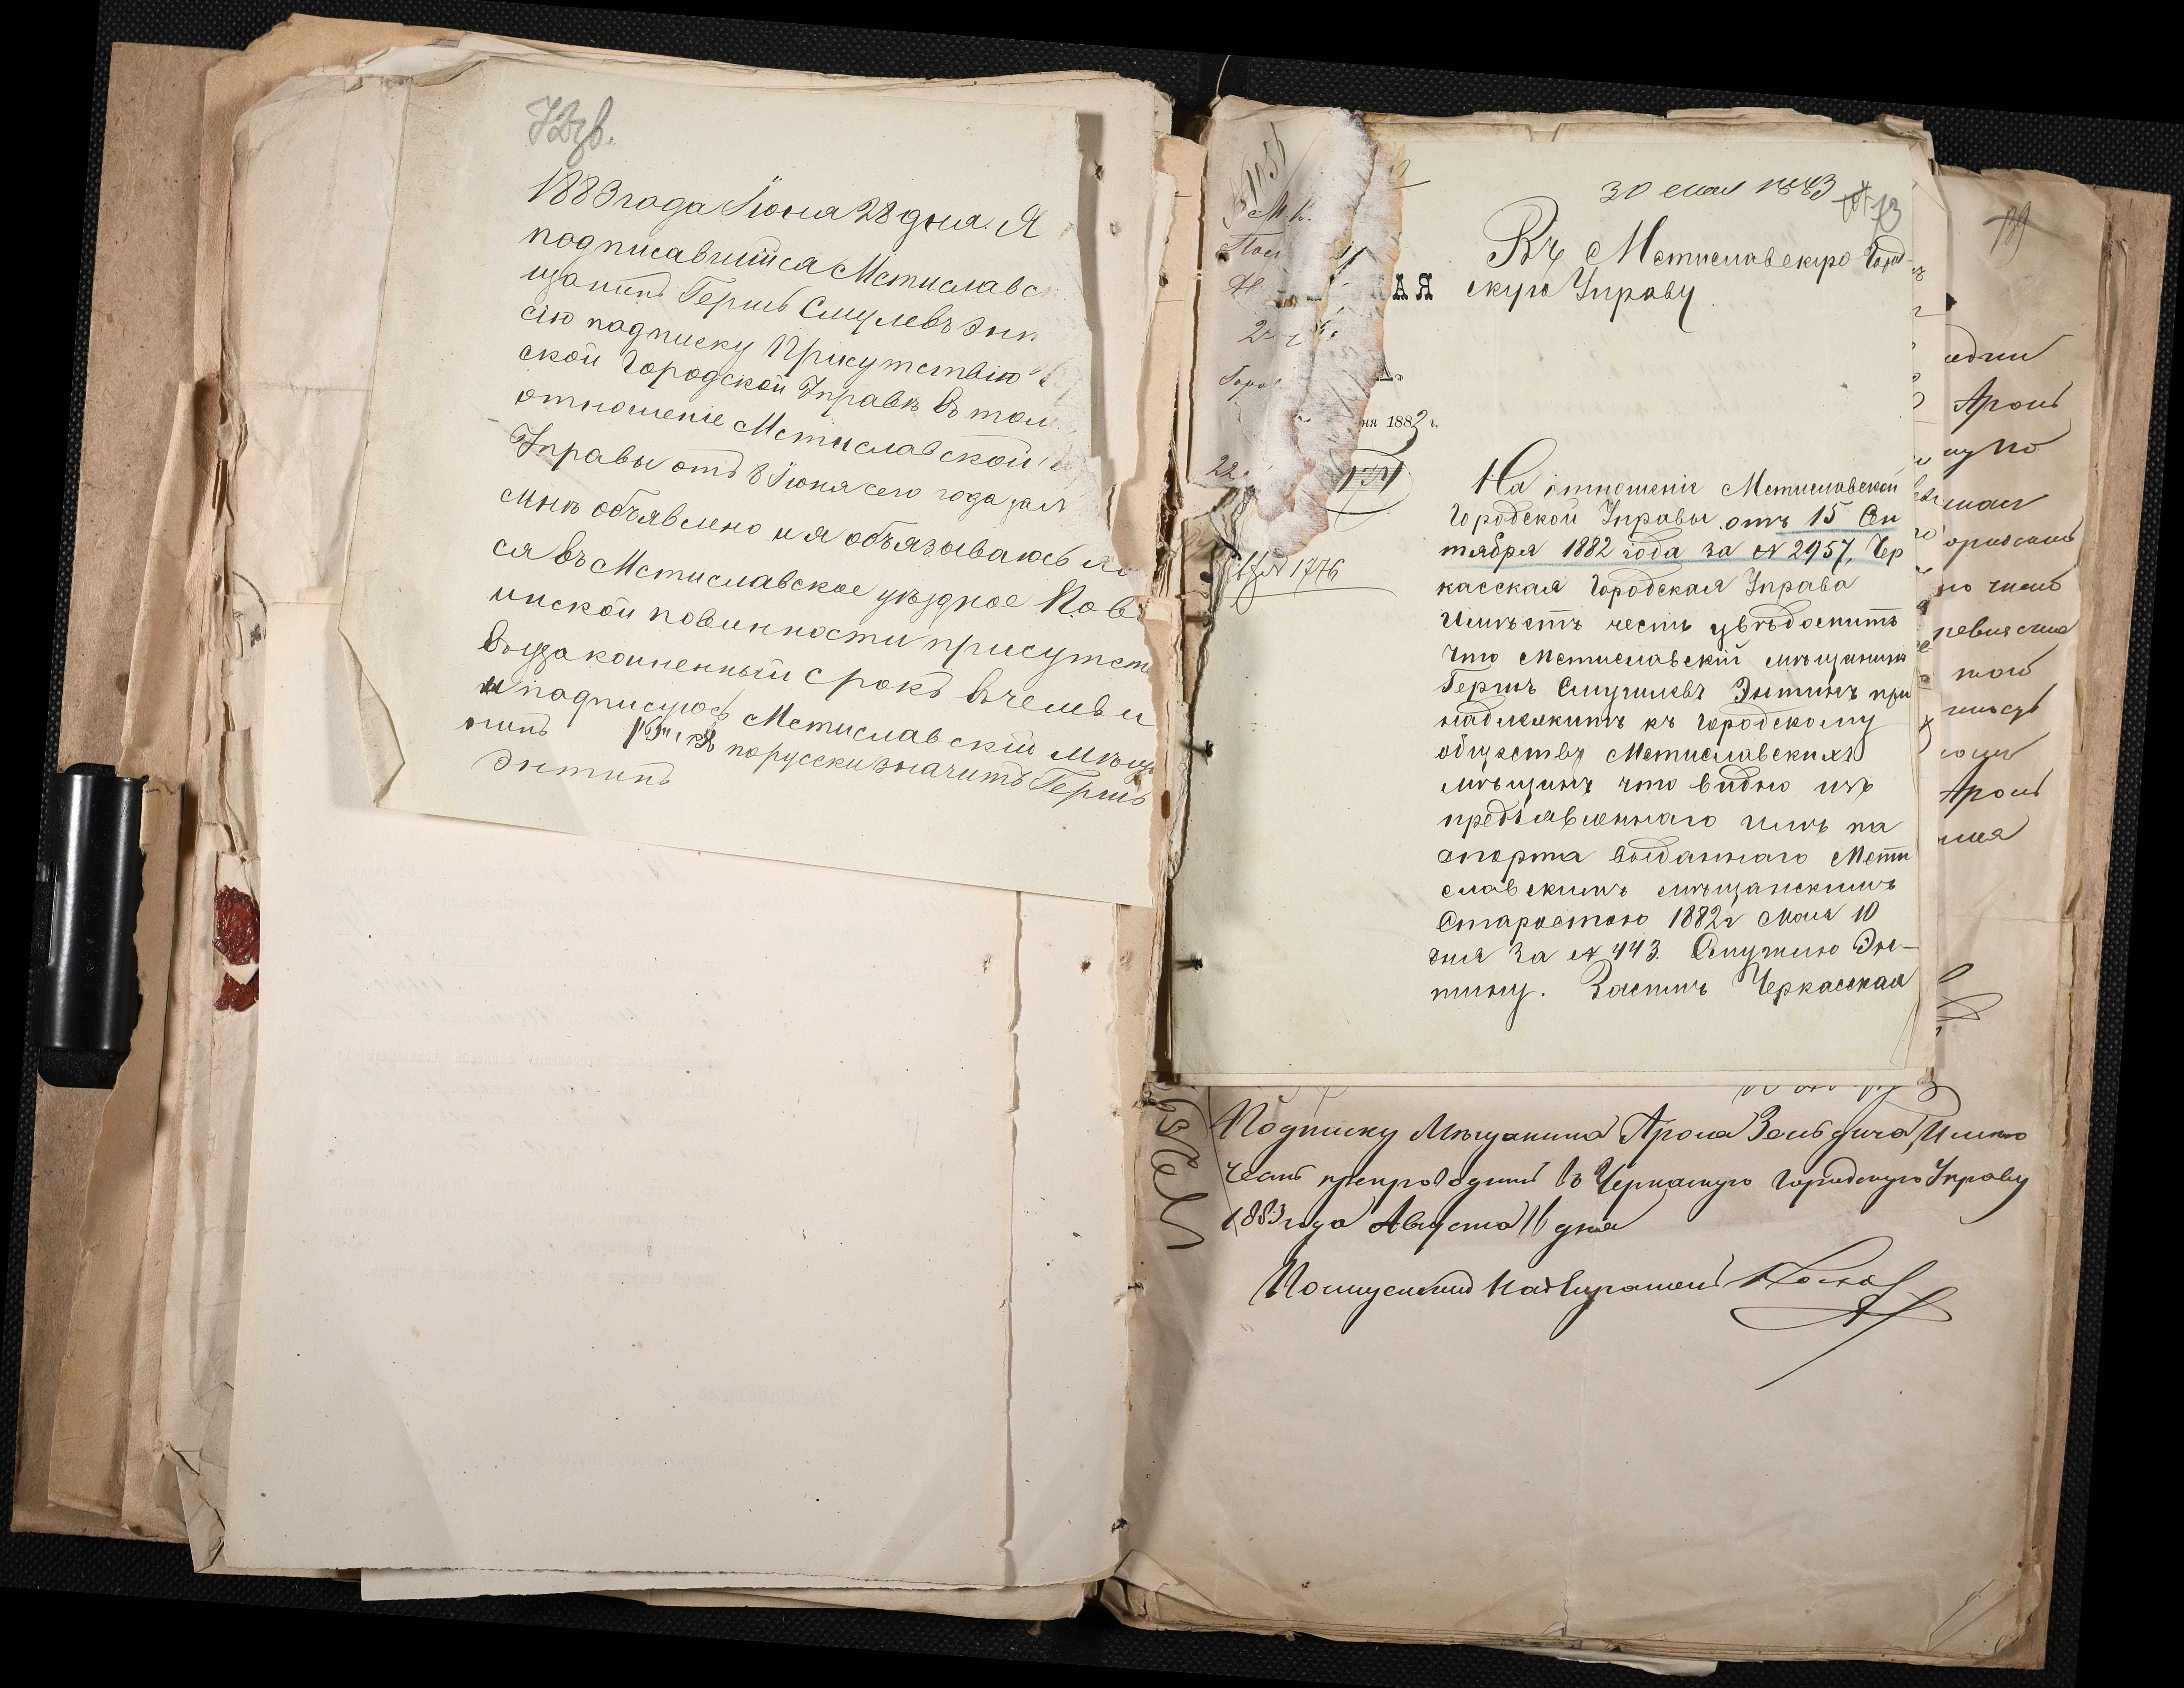 72об.
1883 года Іюня 28 дня. Я
подписавшійся Мстиславс
щанинъ Гершъ Смулевъ Энт
сію подписку Присутствію
ской Городской Управѣ въ том
отношеніе Мстиславской
Управы отъ 8 Іюня сего года за №
мнѣ объявлено и я обязываюсь яв
ся въ Мстиславское уѣздное По в
инской повинности присутст
въ узаконенный срокъ въ чемъ и
и подписуюсь Мстиславскій Мѣща
нинъ по русски значитъ Гершъ
Энтинъ
30 мая 1883
73
Въ Мстиславскую Город-
скую Управу
КАЯ
ня 1883 г.
22
№ 1776
На отношеніе Мстиславской
Городской Управы отъ 15 Сен
тября 1882 года за № 2957, Чер
касская Городская Управа
имѣетъ честь увѣдомить
что Мстиславскій мѣщанинъ
Гершъ Смуилевъ Энтинъ при
надлежитъ къ городскому
обществу Мстиславскихъ
мѣщанъ что видно изъ
предъявленнаго имъ па
спорта выданнаго Мсти
славскимъ мѣщанскимъ
Старостою 1882 г Мая 10
дня за № 443. Смуилю Эн-
тину. Засимъ Черкасская
Подписку Мѣщанина Арона Зельдича, Имѣю
честь препроводить въ Черкаскую Городскую Управу
1883 года Августа 16 дня
Полицейскій Надзиратель
139
Аронъ
Аронъ